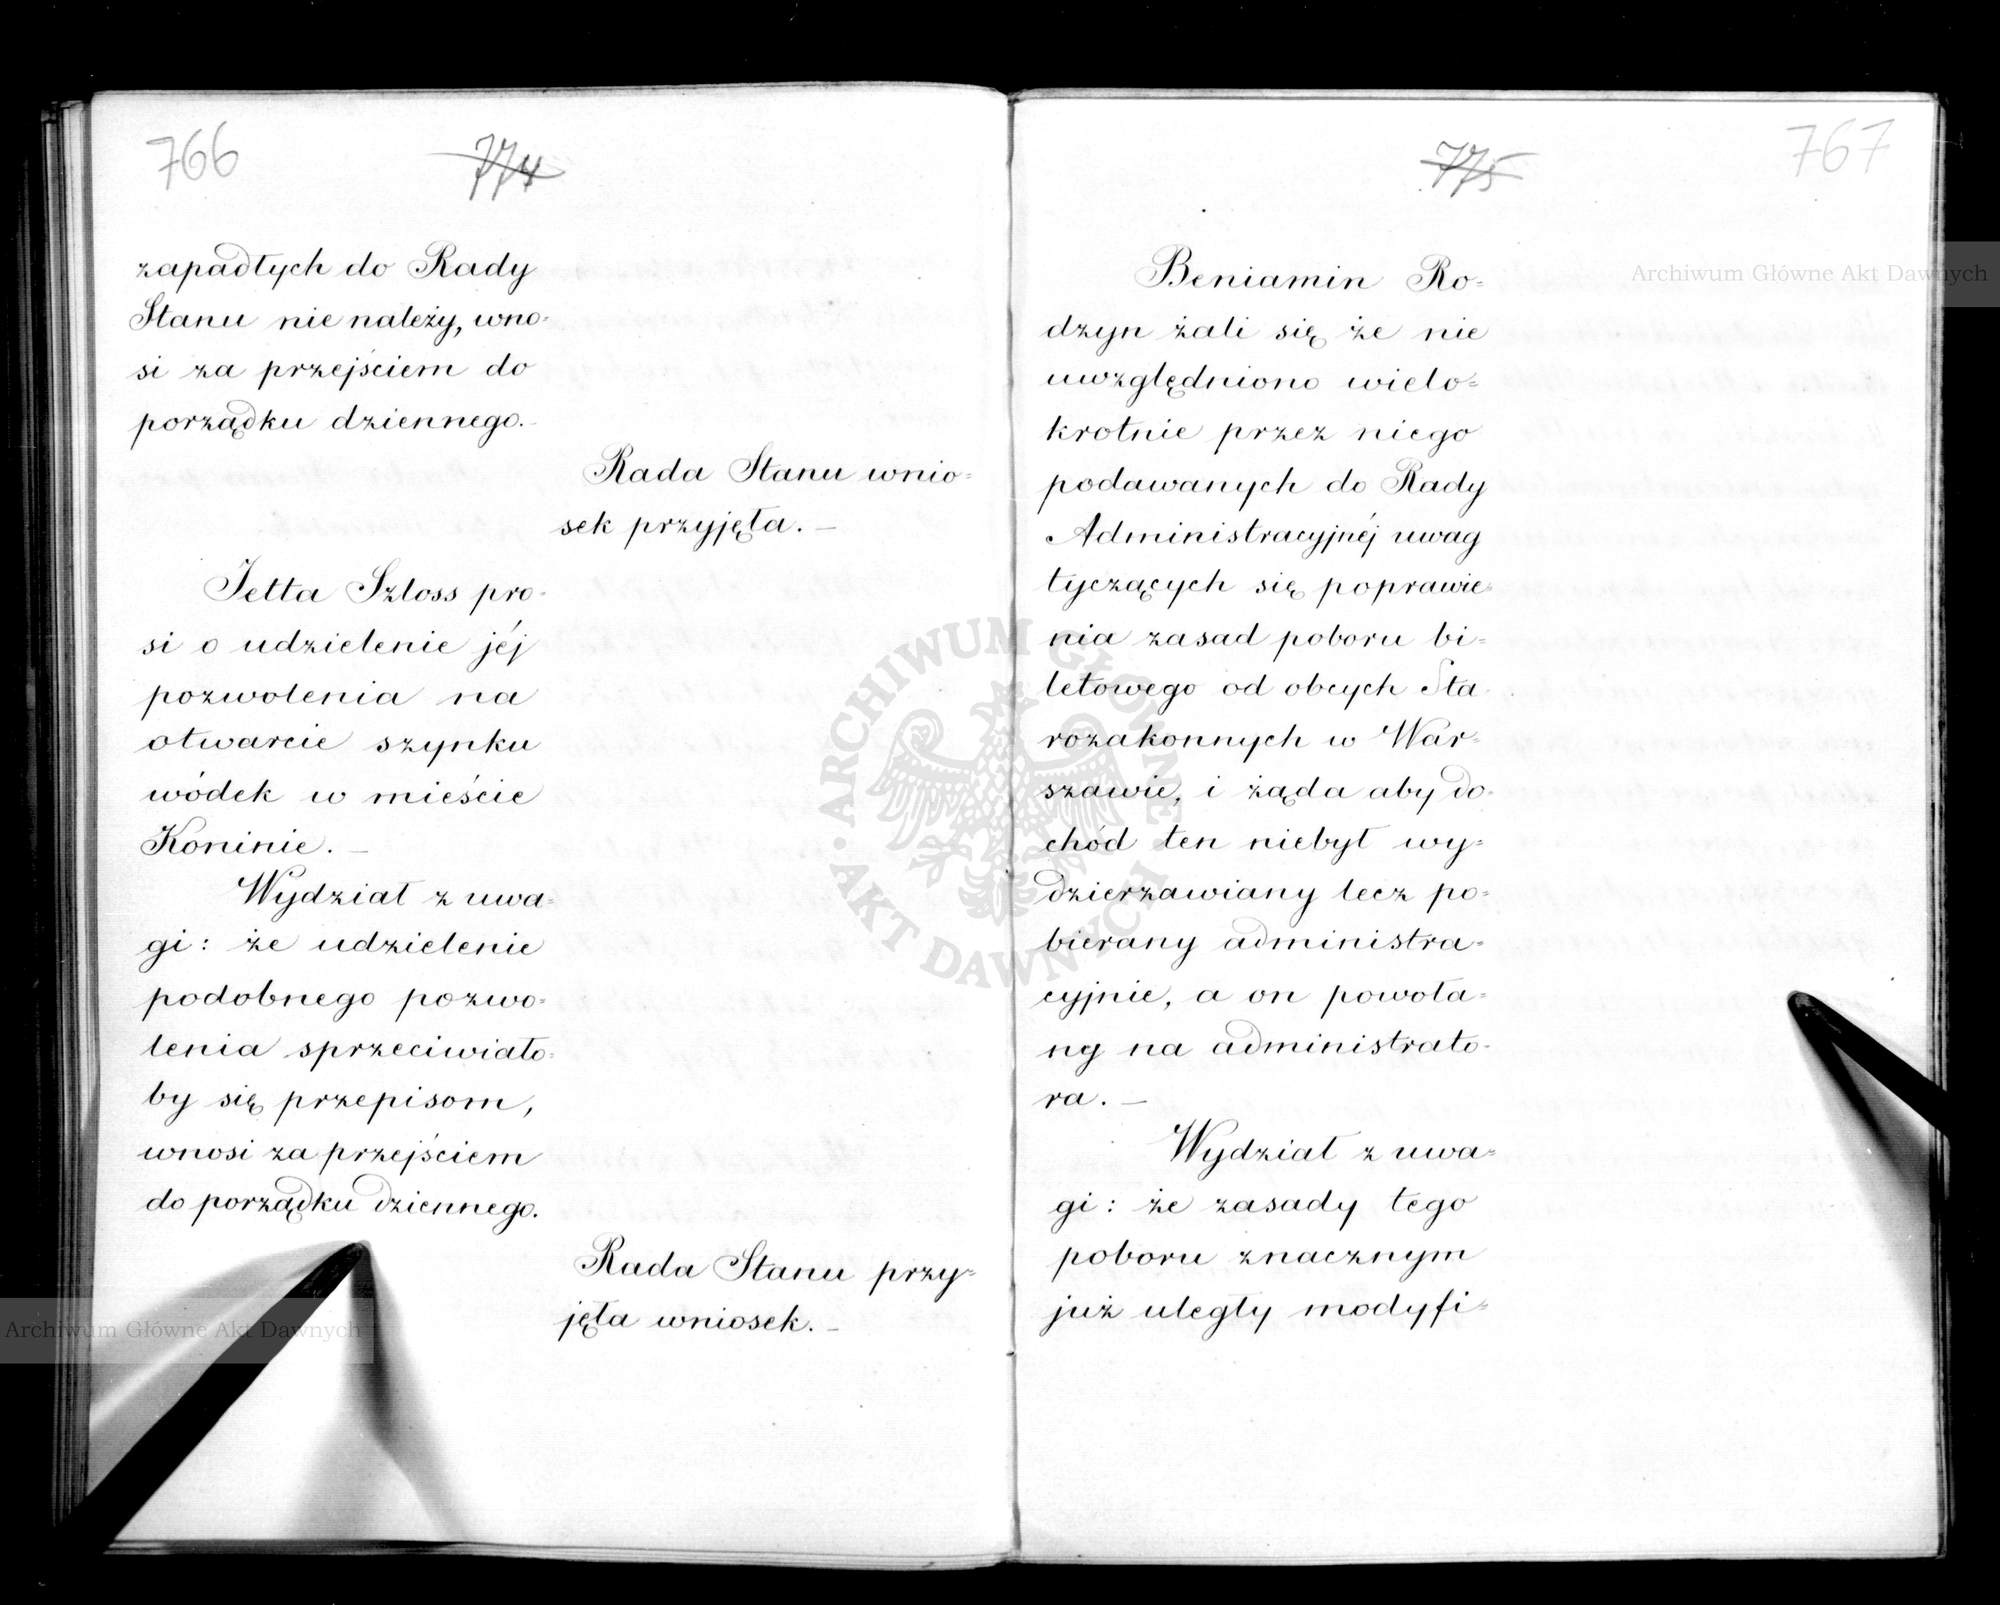 766
774
zapadłych do Rady
Stanu nie należy, wno-
si za przejściem do
porządku dziennego. -
Rada Stanu wnio-
sek przyjęła. —
Jetta Szloss pro-
si o udzielenie jéj
pozwolenia na
otwarcie szynku
wódek w mieście
Koninie. —
Wydział z uwa-
gi: że udzielenie
podobnego pozwo-
lenia sprzeciwiało-
by się przepisom,
wnosi za przejściem
do porządku dziennego.
Rada Stanu przy-
jęła wniosek. —
775
767
Beniamin Ro-
dzyn żali się że nie
uwzględniono wielo-
krotnie przez niego
podawanych do Rady
Administracyjnéj uwag
tyczących się poprawie-
nia zasad poboru bi-
letowego od obcych Sta-
rozakonnych w War-
szawie, i żąda aby do-
chód ten niebył wy-
dzierzawiany lecz po-
bierany administra-
cyjnie, a on powoła-
ny na administrato-
ra. —
Wydział z uwa-
gi: że zasady tego
poboru znacznym
już uległy modyfi-
Archiwum Główne Akt Dawnych
Archiwum Główne Akt Dawnych
ARCHIWUM GŁÓWNE
AKT DAWNYCH